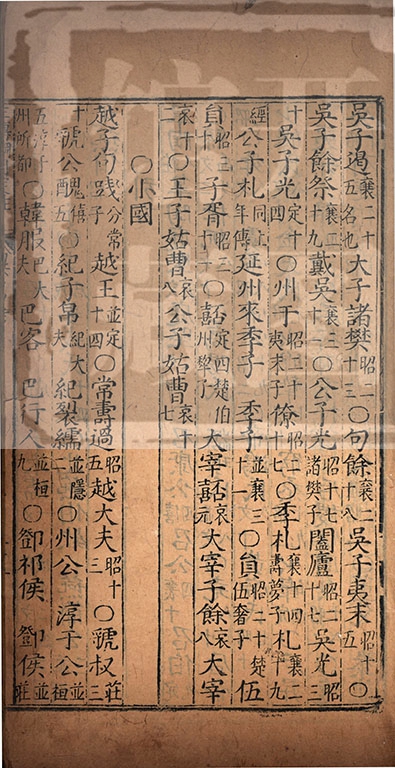 吳子遏襄二十五名也大子諸樊昭二十三○句餘襄二十八吳子夷末昭十五○
吳子餘祭襄二十九戴吳襄三十一○公子光昭十七諸樊子闔廬昭二十七吳光昭三
十吳子光定十四○州于昭二十夷末子僚昭二十七○季札襄十四壽夢子札襄二十九
經公子札同上年傳延州來季子季子並襄三十一○員昭二十楚伍奢子伍
員昭三十子胥昭三十一○嚭定四楚伯州犂子大宰嚭哀元大宰子餘哀八大宰
哀十二○王子姑曹哀八公子姑曹哀十七
○小國
越子句踐分常越王並定十四○常壽過昭五越大夫昭十三○虢叔莊三
十虢公醜僖五○紀子帛紀大夫紀裂繻並隱二○州公淳于公並桓
五淳于州所都○韓服巴大夫巴客巴行人並桓九○鄧祁侯鄧侯並莊